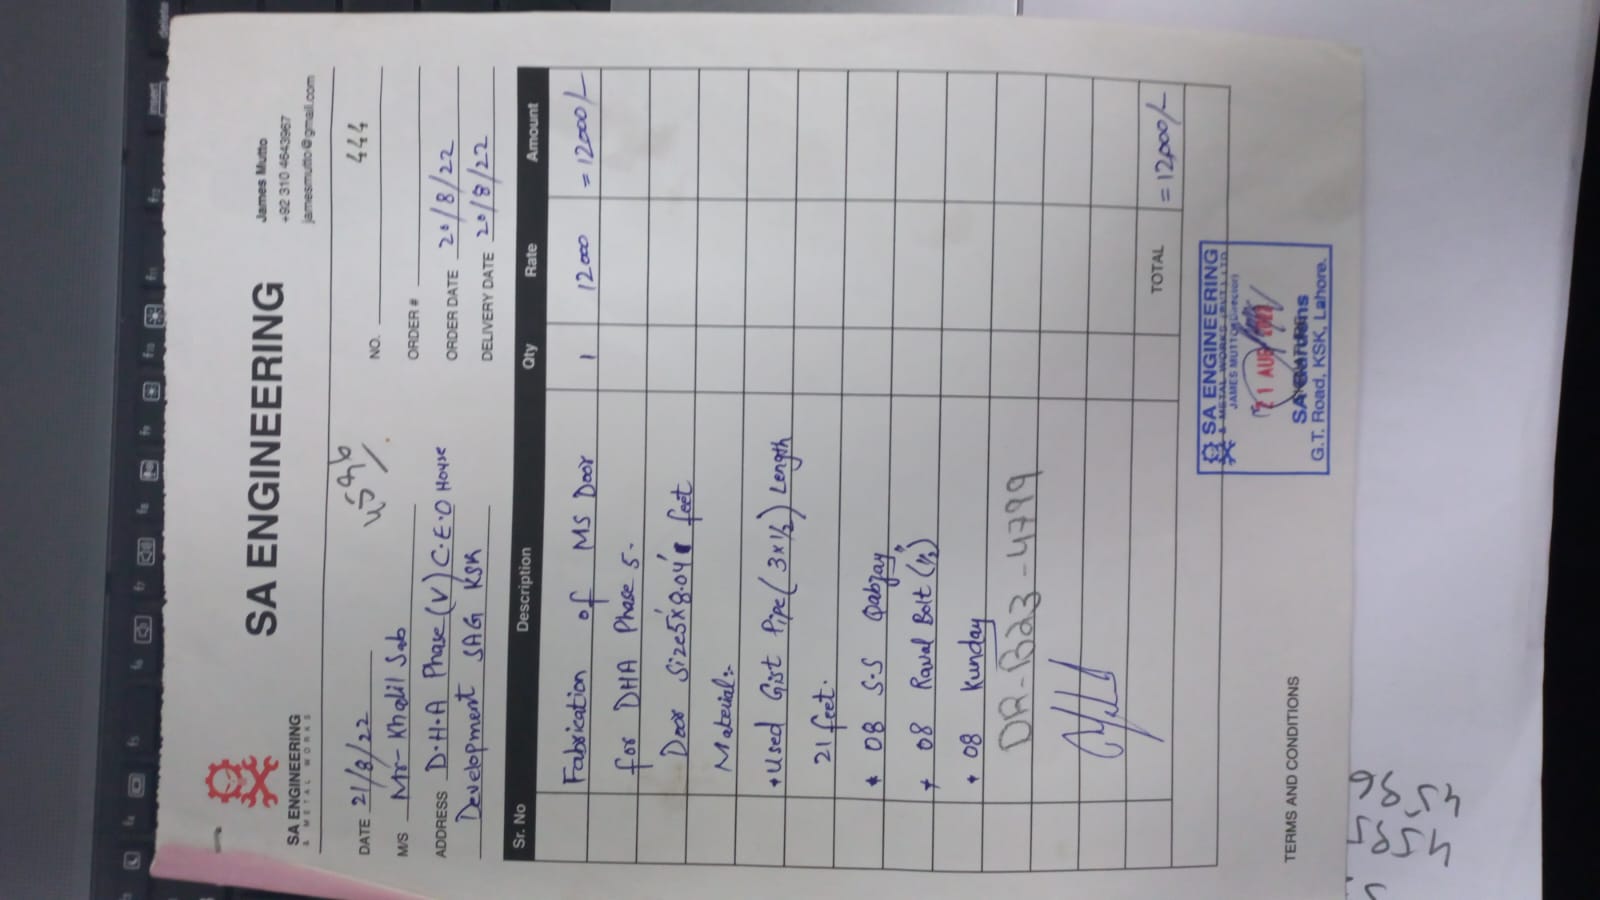 SA ENGINEERING
& METAL WORKS
SA ENGINEERING
James Mutto
+92 310 4643967
jamesmutto@gmail.com
DATE 21/8/22
NO. 444
M/S Mr- Khalil Sab
ORDER #
ADDRESS D.H.A Phase (V) C.E.O House
ORDER DATE 20/8/22
Development SAG KSK
DELIVERY DATE 20/8/22
Sr. No Description Qty Rate Amount
Fabrication of MS Door 1 12000 = 12000/-
for DHA Phase 5.
Door Size 5'x8.04' feet
Material:-
+ Used Gist Pipe (3x1½) Length
21 feet.
+ 08 S.S Qabzay
+ 08 Raval Bolt (½")
+ 08 Kunday
DR-B23-4799
TOTAL = 12,000/-
TERMS AND CONDITIONS
SA ENGINEERING
& METAL WORKS (PVT) LTD
JAMES MUTTO (Director)
21 AUG 2022
SA Gardens
G.T. Road, KSK, Lahore.